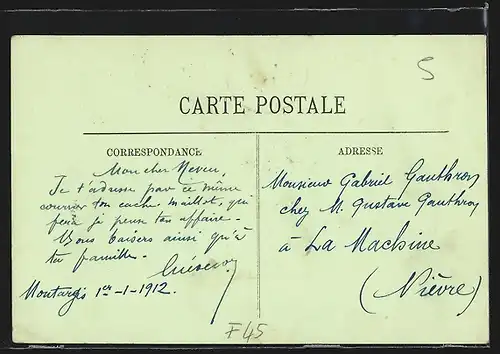 5
CARTE POSTALE
CORRESPONDANCE
Mon cher Neveu,
Je t'adresse par ce même
courrier ton cache maillot, qui
fera je pense ton affaire.
Bons baisers ainsi qu'à
ta famille.
Montargis 1er-1-1912.
ADRESSE
Monsieur Gabriel Gauthron
chez M. Gustave Gauthron
à La Machine
(Nièvre)
F45